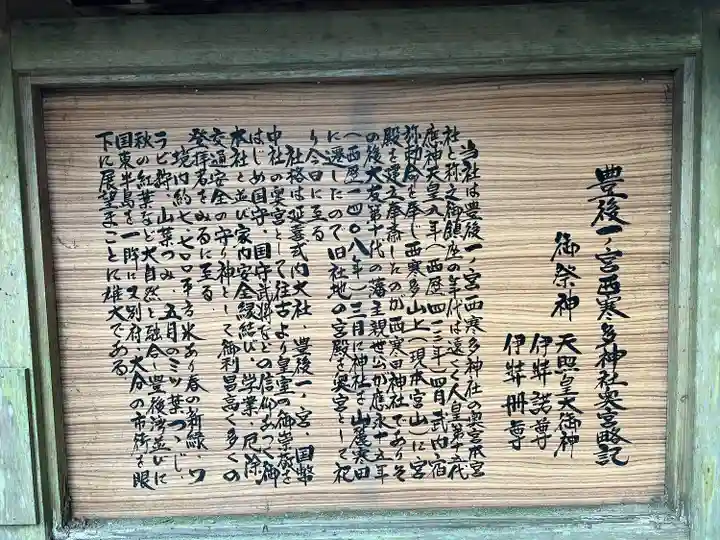 豊後一ノ宮西寒多神社奥宮略記
御祭神 天照皇大御神
伊弉諾尊
伊弉冊尊
当社は豊後一ノ宮西寒多神社の奥宮本宮
社と称え御鎮座の年代は遠く人皇第十五代
應神天皇八年(西歴四一三年)四月武内宿
祢勅命を奉じ西寒多山上(現本宮山)に宮
殿を建立奉斎したのが西寒田神社でありそ
の後大友第十代の藩主親世公が應永十五年
(西歴一四〇八年)三月に神社を山麓寒田
に遷したので旧社地の宮殿を奥宮として祀
り今日に至る
社格は延喜式内大社、豊後一ノ宮、国幣
中社の奥宮として往古より皇室の御崇敬を
はじめ国守、国守武将などの信仰あつく御
本社と並び家内安全縁結び、学業、厄除、
交通安全の守り神として御利昌高く多くの
登拝者をみるに至る
境内約七、七〇〇平方米あり春の新緑、ワ
ラビ狩、山菜つみ、五月のミツ葉つゝじ、
秋の紅葉など大自然と融合し豊後湾並びに
国東半島を一眸に又別府、大分の市街を眼
下に展望まことに雄大である、